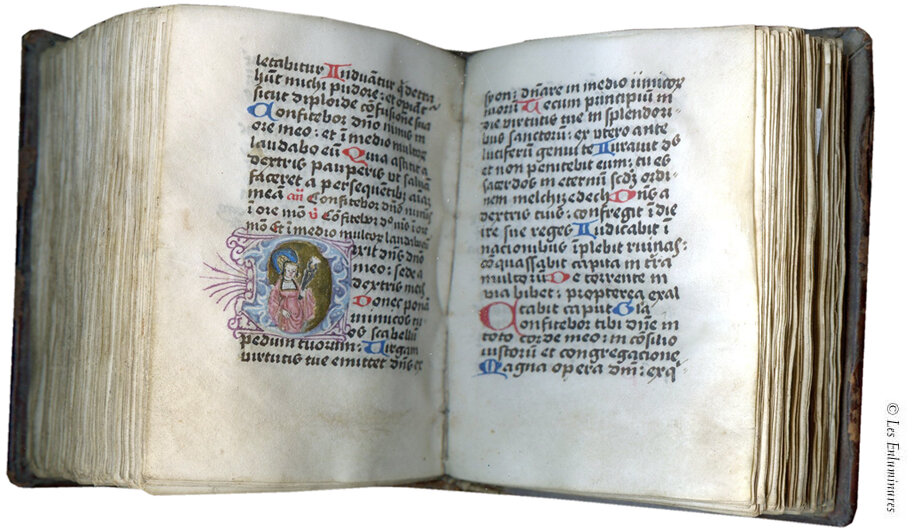 letabitur Induãtur q̃ detra
hũt michi pudore : et opiãt᷑
sicut diploide cõfusione sua
Confitebor dño nimis in
ore meo : et ĩ medio multoꝝ
laudabo eũ Quia astitit a
dextris pauperis ut saluã
faceret a persequẽtibꝯ aĩaʒ
meã añ Confitebor dño nimis
ĩ ore mõ ỹ Cõfitebor dº nĩs ĩ ore
mõ Et ĩ medio multoꝝ laudabo eũ
Dixit dñs dño
meo : sede a
dextris meis
Donec ponã
inimicos tu
os scabellũ
pedum tuorum : Uirgam
virtutis tue emittet dñs ex
syon : dñare in medio inimicoꝝ
tuorũ Tecum principiũ in
die virtutis tue in splendori-
bus sanctorũ : ex vtero ante
luciferũ genui te Iurauit ds
et non penitebit eum : tu es
sacerdos in eternũ scdʒ ordi-
nem melchizedech Dñs a
dextris tuis : confregit ĩ die
ire sue reges Iudicabit ĩ
nacionibus ĩplebit ruinas :
cõquassabit capita in tr̃a
multorũ De torrente in
via bibet : propterea exal
tabit caput Gl̃a
Confitebor tibi dñe in
toto corde meo : in cõsilio
iustorũ et congregacione
Magna opera dñi : exq̃
© Les Enluminures